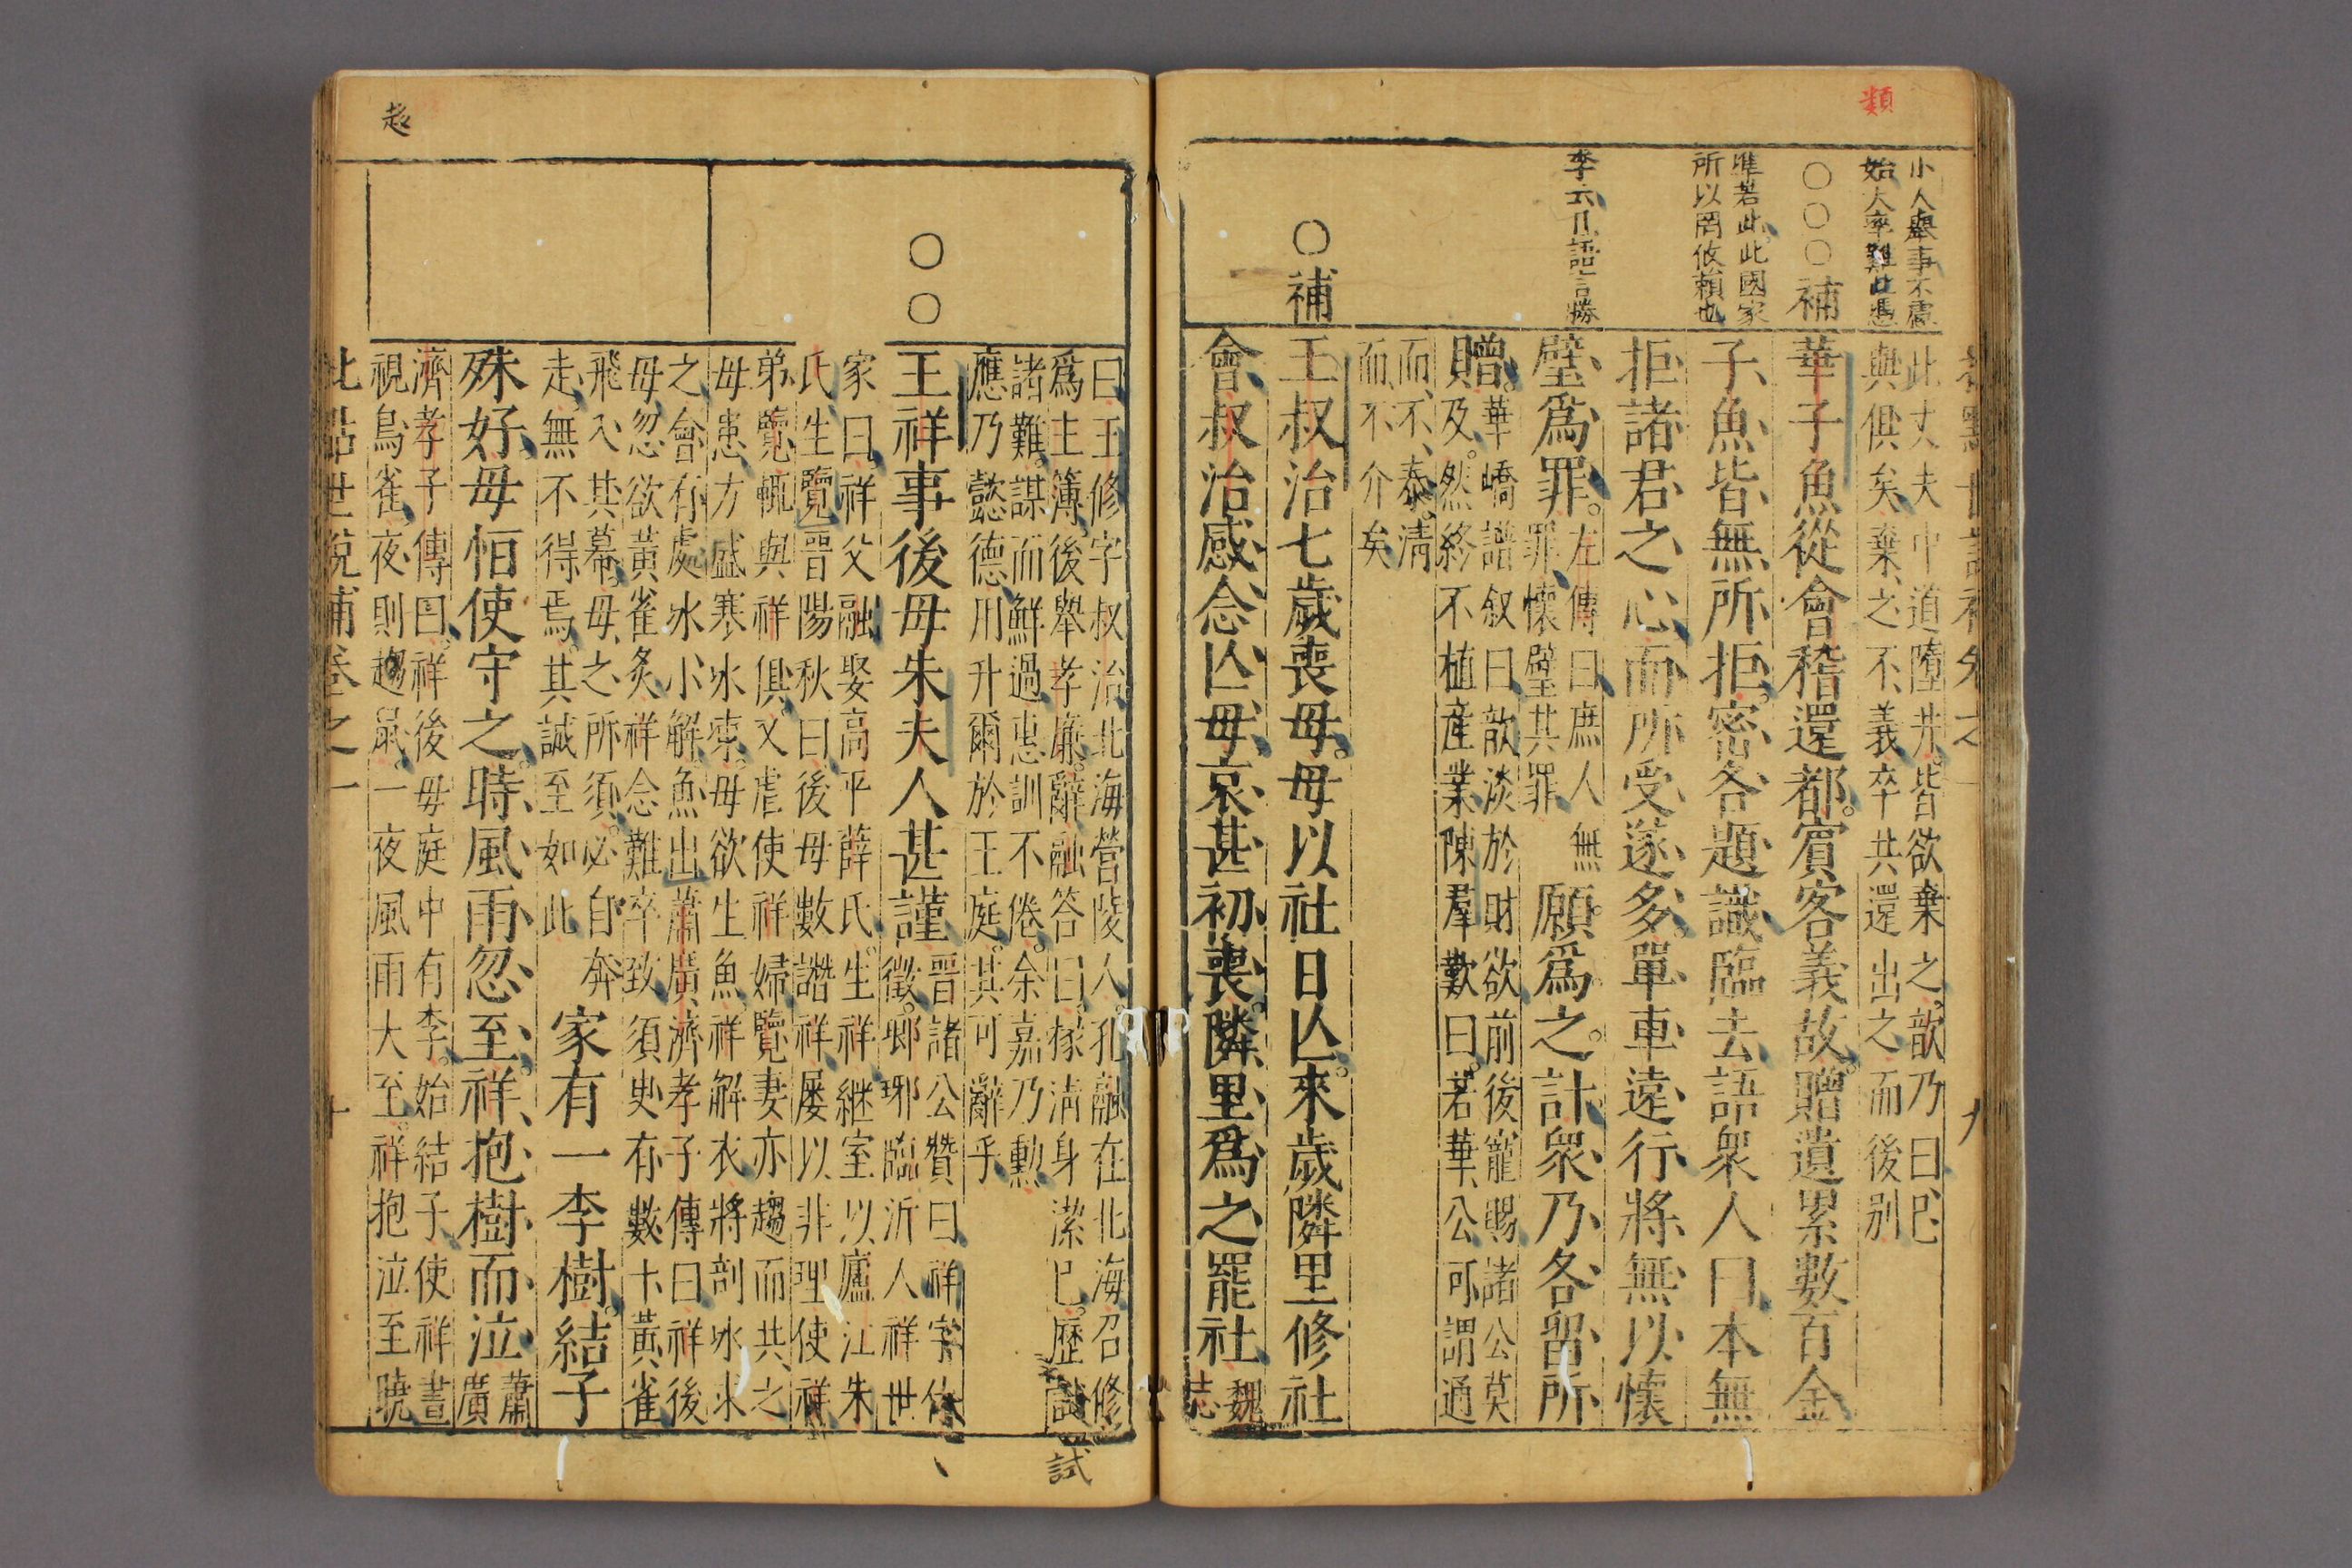 類
小人舉事不慮
始大率難
○○○補
準若此此國家
所以罔攸賴也
李云
語言勝
○補
此丈夫中道墮井皆欲棄之歆乃曰已
與俱矣棄之不義卒共還出之而後别
華子魚從會稽還都賓客義故贈遺累數百金
子魚皆無所拒密各題識臨去語衆人曰本無
拒諸君之心而所受遂多單車遠行將無以懷
璧爲罪
左傳曰庶人無
罪懷璧其罪
願爲之計衆乃各留所
贈
華嶠譜叙曰歆淡於財欲前後寵賜諸公莫
及然終不植產業陳羣歎曰若華公可謂通
而不泰清
而不介矣
王叔治七歲喪母母以社日亾來歲隣里修社
會叔治感念亾母哀甚初喪隣里爲之罷社
魏
志
九
起
○○
曰王修字叔治北海營陵人孔融在北海召修
爲主簿後舉孝廉辭融答曰掾淸身潔已歷試
諸難謀而鮮過惠訓不倦余嘉乃勲
應乃懿德用升爾於王庭其可辭乎
試
王祥事後母朱夫人甚謹
晉諸公贊曰祥字休
徵瑯琊臨沂人祥世
家曰祥父融娶高平薛氏生祥繼室以廬江朱
氏生覽晉陽秋曰後母數譖祥屢以非理使祥
弟覽輒與祥俱又虐使祥婦覽妻亦趨而共之
母患方盛寒冰凍母欲生魚祥解衣將剖冰求
之會有處冰小解魚出蕭廣濟孝子傳曰祥後
母忽欲黃雀炙祥念難卒致須臾有數十黃雀
飛入其幕母之所須必自奔
走無不得焉其誠至如此
家有一李樹結子
殊好母恒使守之時風雨忽至祥抱樹而泣
蕭
廣
濟孝子傳曰祥後母庭中有李始結子使祥晝
視鳥雀夜則趨鼠一夜風雨大至祥抱泣至曉
批點世說補卷之一
十